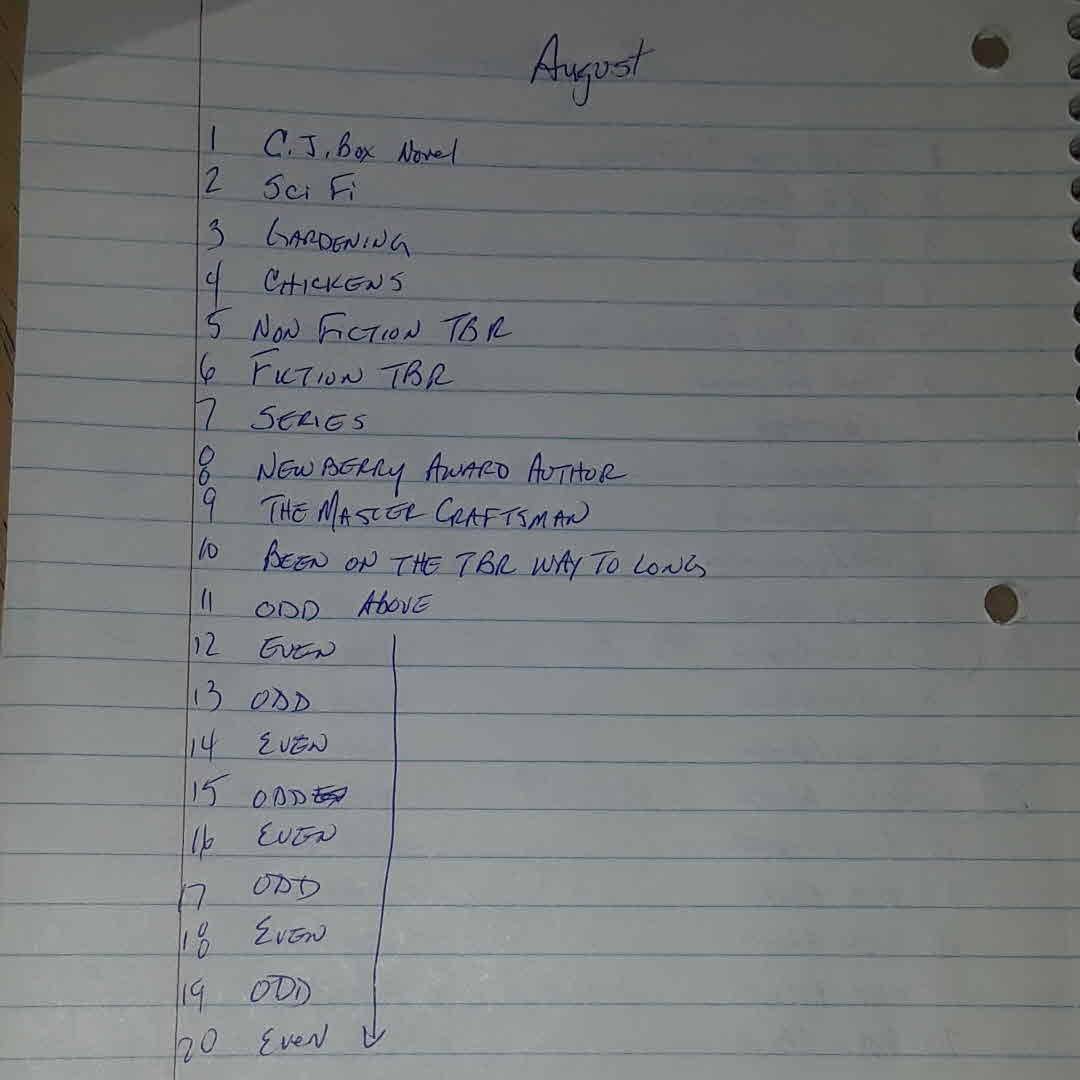 August
1 C.J. Box Novel
2 Sci Fi
3 GARDENING
4 CHICKENS
5 NON FICTION TBR
6 FICTION TBR
7 SERIES
8 NEWBERRY AWARD AUTHOR
9 THE MASTER CRAFTSMAN
10 BEEN ON THE TBR WAY TO LONG
11 ODD ABOVE
12 EVEN
13 ODD
14 EVEN
15 ODD
16 EVEN
17 ODD
18 EVEN
19 ODD
20 EVEN